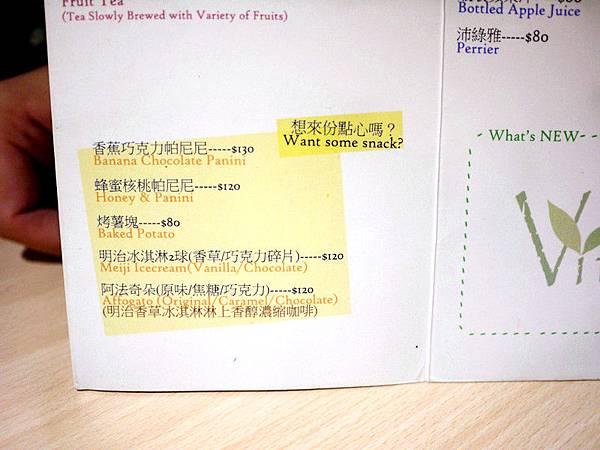 Fruit Tea
(Tea Slowly Brewed with Variety of Fruits)
想來份點心嗎？
Want some snack?
香蕉巧克力帕尼尼-----$130
Banana Chocolate Panini
蜂蜜核桃帕尼尼-----$120
Honey & Panini
烤薯塊-----$80
Baked Potato
明治冰淇淋2球(香草/巧克力碎片)-----$120
Meiji Icecream(Vanilla/Chocolate)
阿法奇朵(原味/焦糖/巧克力)-----$120
Affogato (Original/Caramel/Chocolate)
(明治香草冰淇淋淋上香醇濃縮咖啡)
Bottled Apple Juice
沛綠雅-----$80
Perrier
What's NEW